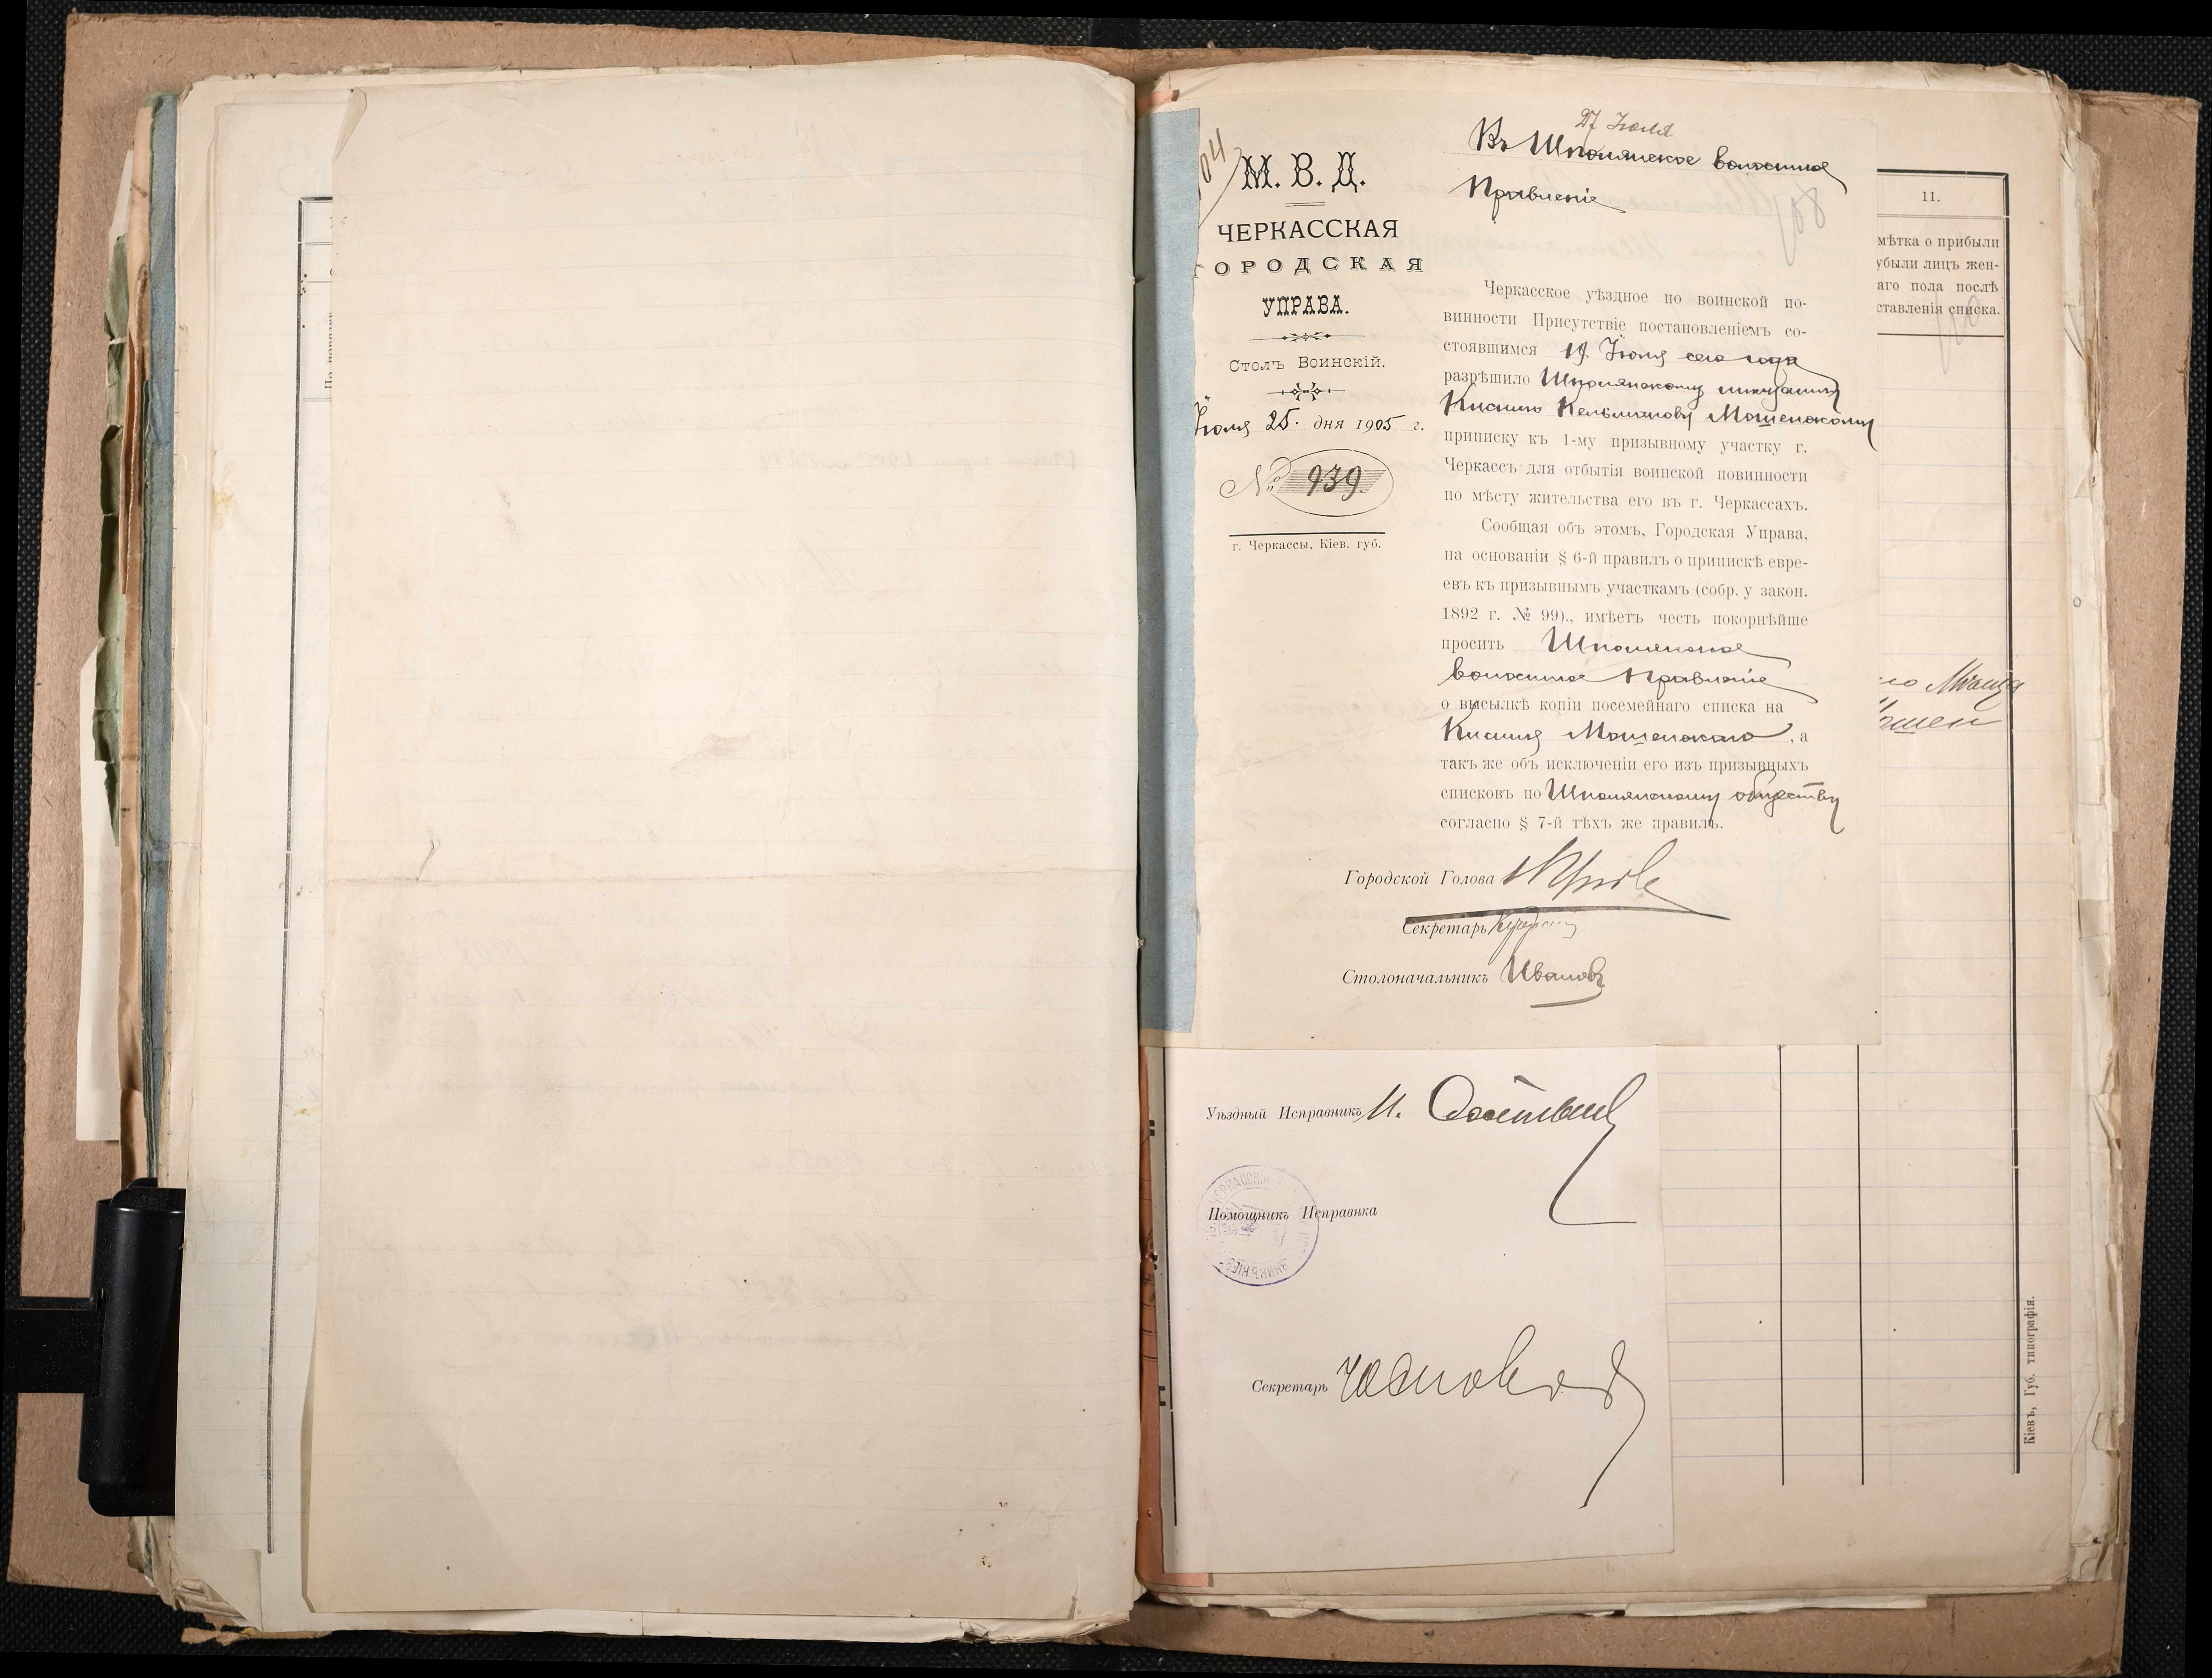 27 Іюля
Въ Шполянское волостное
Правленіе
М. В. Д.
ЧЕРКАССКАЯ
ГОРОДСКАЯ
УПРАВА.
Столъ Воинскій.
Іюля 25. дня 1905 г.
№ 939.
г. Черкассы, Кіев. губ.
Черкасское уѣздное по воинской по-
винности Присутствіе постановленіемъ со-
стоявшимся 19 Іюля сего года
разрѣшило Шполянскому мѣщанину
Кисилю Кельманову Мошенскому
приписку къ 1-му призывному участку г.
Черкассъ для отбытія воинской повинности
по мѣсту жительства его въ г. Черкассахъ.
Сообщая объ этомъ, Городская Управа,
на основаніи § 6-й правилъ о припискѣ евре-
евъ къ призывнымъ участкамъ (собр. у закон.
1892 г. № 99)., имѣетъ честь покорнѣйше
просить Шполянское
волостное Правленіе
о высылкѣ копіи посемейнаго списка на
Кисиля Мошенскаго, а
такъ же объ исключеніи его изъ призывныхъ
списковъ по Шполянскому обществу
согласно § 7-й тѣхъ же правилъ.
Городской Голова
Секретарь
Столоначальникъ Ивановъ
11.
мѣтка о прибыли
убыли лицъ жен-
аго пола послѣ
ставленія списка.
Уѣздный Исправникъ
Помощникъ Исправика
Секретарь
Кіевъ, Губ. типографія.